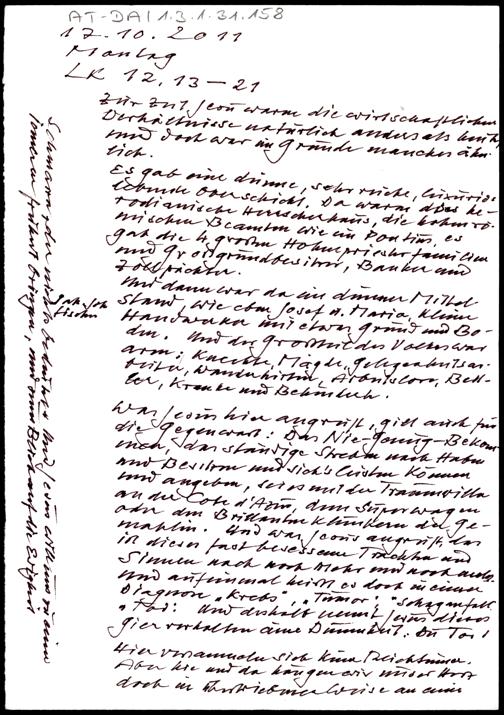 AT-DA 1.3.1.31.158
17.10.2011
Montag
LK 12,13-21
Zur Zeit Jesu waren die wirtschaftlichen
Verhältnisse natürlich anders als heute,
und doch war im Grunde manches ähn-
lich.
Es gab eine dünne, sehr reiche, luxuriös
lebende Oberschicht. Da waren das he-
rodianische Herrscherhaus, die hohen rö-
mischen Beamten wie ein Pontius, es
gab die 4 großen Hohepriesterfamilien
und Großgrundbesitzer, Banker und
Zollpächter.
Und dann war da ein dünner Mittel
Stand, wie eben Josef u. Maria, kleine
Handwerker mit etwas Grund und Bo-
den. Und der Großteil des Volkes war
arm: Knechte, Mägde, Gelegenheitsar-
beiter, Wanderhirten, Arbeitslose, Bett-
ler, Kranke und Behinderte.
Was Jesus hier angreift, gilt auch für
die Gegenwart: Das Nie-Genug-Bekom-
men, das ständige Streben nach Haben
und Besitzen und sich's leisten Können
und angeben, sei es mit der Traumvilla
an der Cote d'Azur, dem Superwagen
oder den Brillanten Klunkern der Ge-
mahlin. Und was Jesus angreift, das
ist dieses fast besessene Trachten und
Sinnen nach noch Mehr und noch mehr,
und auf einmal heißt es doch in einer
Diagnose „Krebs", „Tumor", „Schlaganfall",
„Tod". Und deshalb nennt Jesus dieses
gier verhalten eine Dummheit. Du Tor!
Hier versammeln sich keine Reichtümer.
Aber hie und da hängen wir unser Herz
doch in übertriebener Weise an eine
See
Fischer
Und Jesus will uns zu einer
inneren Freiheit bringen, mit dem Blick auf die Ewigkeit